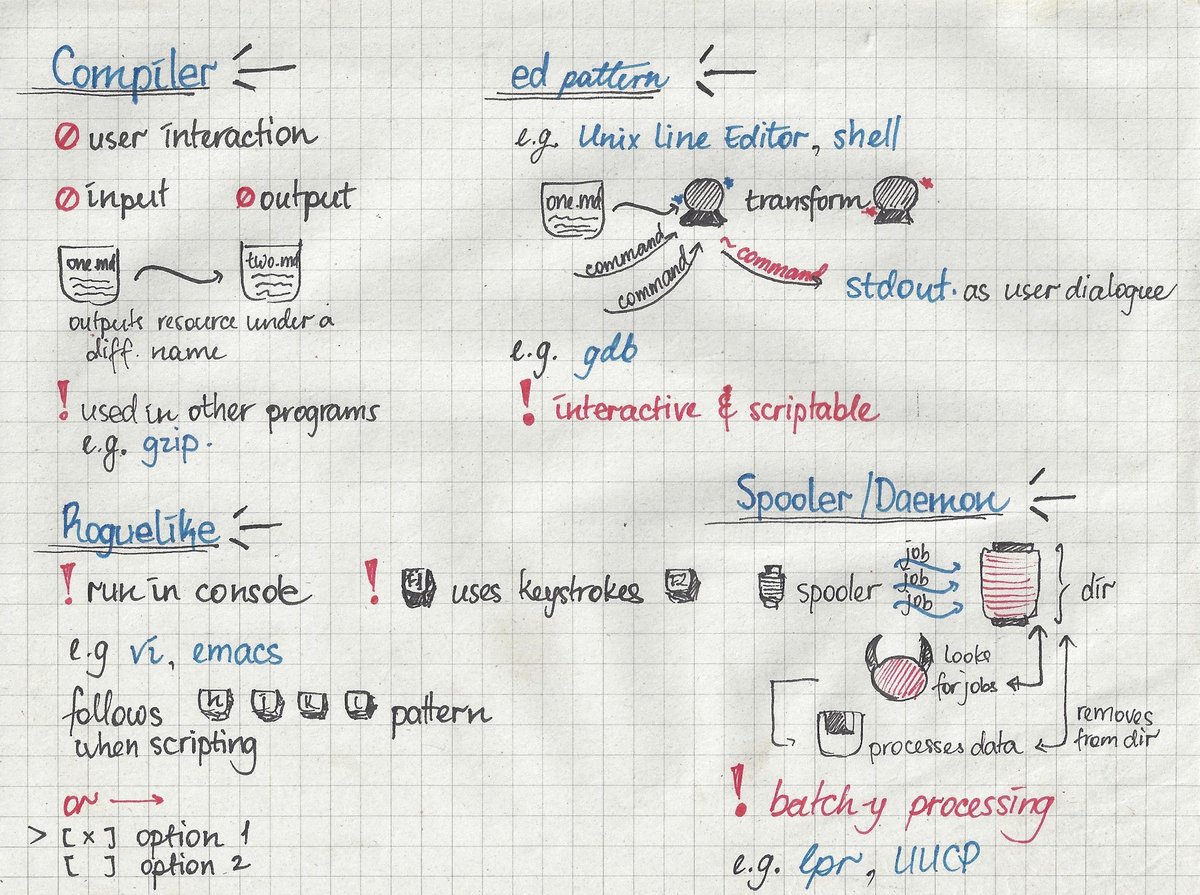 Compiler
∅ user interaction
∅ input ∅ output
one.md two.md
outputs resource under a
diff. name
! used in other programs
e.g. gzip.
ed pattern
e.g. Unix line Editor, shell
one.md transform
command
command
~ command
stdout. as user dialogue
e.g. gdb
! interactive & scriptable
Roguelike
! run in console
! F1 uses keystrokes F2
e.g vi, emacs
follows h j k l pattern
when scripting
or →
> [x] option 1
[ ] option 2
Spooler/Daemon
spooler job job job dir
looks
for jobs
processes data
removes
from dir
! batch-y processing
e.g. lpr, UUCP